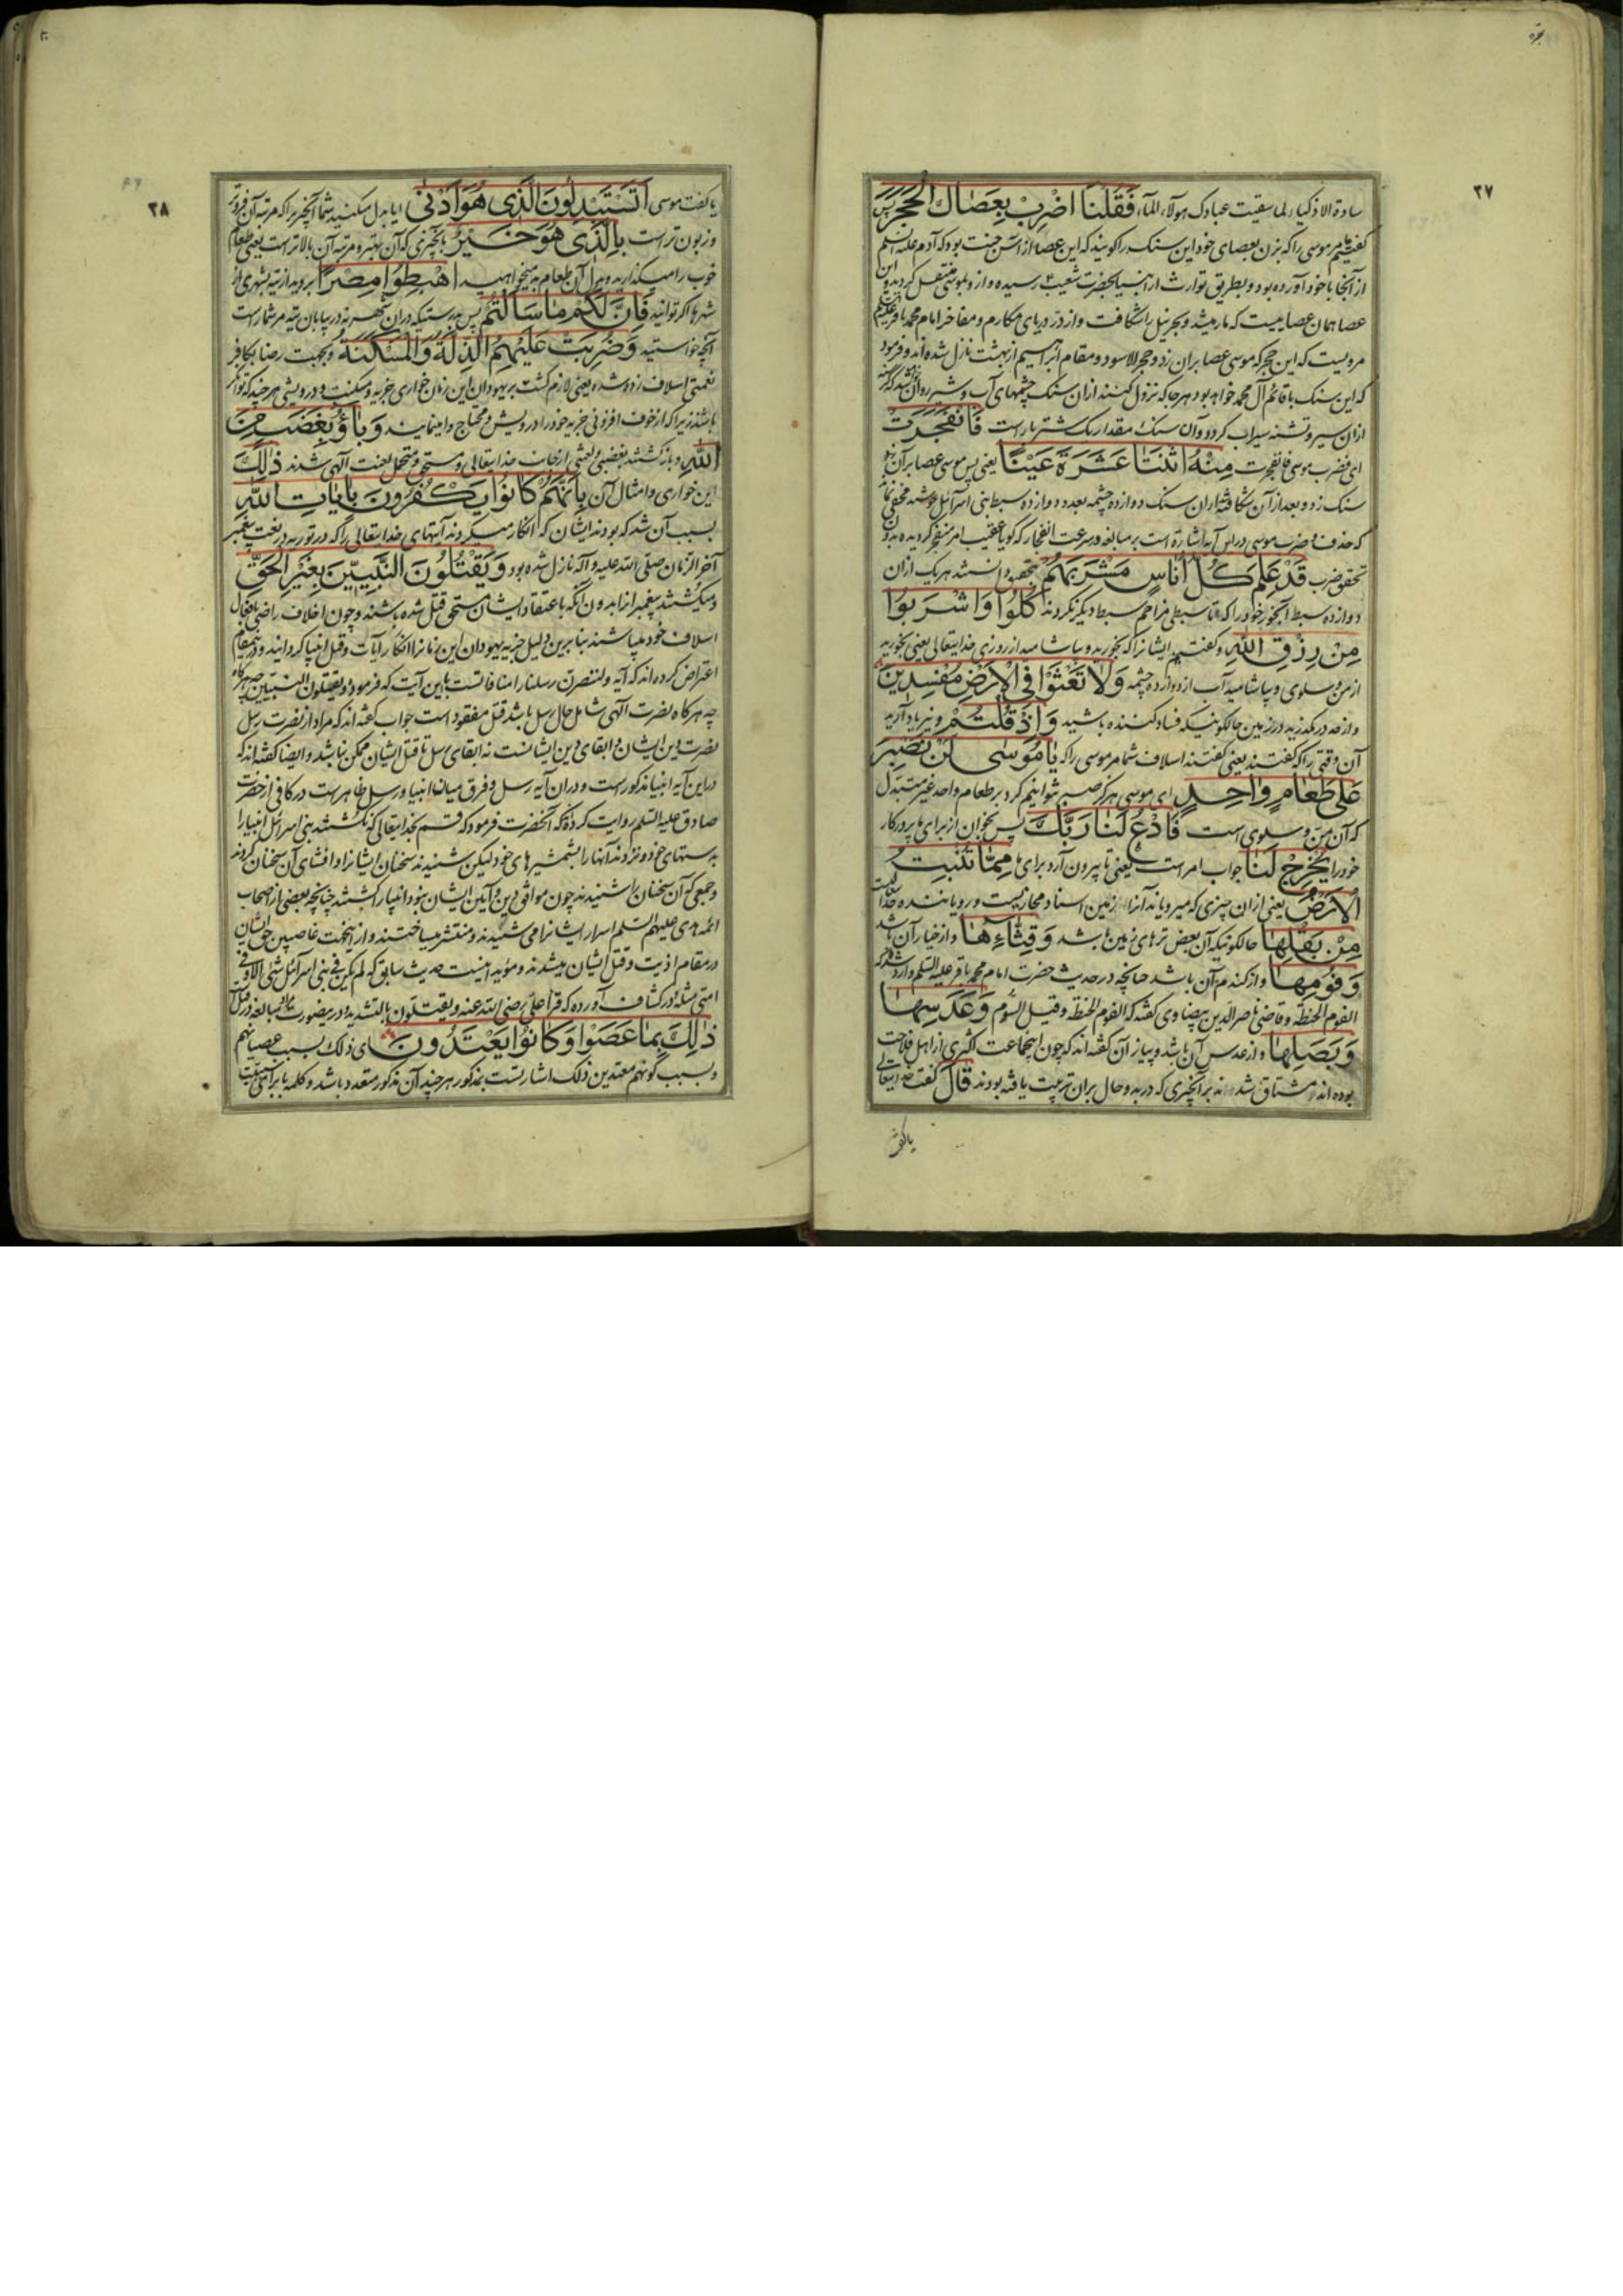 ۲۷
سادة الاذکیاء لما سقیت عبادک هولاء الماء فَقُلْنَا اضْرِبْ بِعَصَاكَ الْحَجَرَ پس
گفتیم مر موسی را که بزن بعصای خود این سنک را کویند که این عصا از آس جنت بود که آدم علیه السلم
از آنجا با خود آورده بود و بطریق توارث از انبیا بحضرت شعیب رسیده و ازو بموسی منتقل کردید و این
عصا همان عصاییست که مار میشد و بحر نیل را شکافت و از درّ دریای مکارم و مفاخر امام محمد باقر علیه السلم
مرویست که این حجر که موسی عصا بران زد و حجر الاسود و مقام ابراهیم از بهشت نازل شده اند و فرمود
که این سنک با قائم آل محمد خواهد بود هر جا که نزول کنند ازان سنک چشمهای آب و شیر روان شود که
ازان سیر و تشنه سیراب کردد و آن سنک مقدار یک شتر بار است فَانْفَجَرَتْ
ای فضرب موسی فانفجرت مِنْهُ اثْنَتَا عَشْرَةَ عَيْنًا یعنی پس موسی عصا بر آن
سنک زد و بعد از آن شکافته شد ازان سنک دوازده چشمه بعدد دوازده سبط بنی اسرائیل مخفی نماند
که حذف ضرب موسی در این آیه اشارة است بر مبالغه در سرعت انفجار که کویا عقیب امر منفجر کردیده بدون
تحقق ضرب قَدْ عَلِمَ كُلُّ أُنَاسٍ مَشْرَبَهُمْ بتحقیق دانستند هر یک ازان
دوازده سبط آبخور خود را که تا سبطی مزاحم سبط دیکر نکردند كُلُوا وَاشْرَبُوا
مِنْ رِزْقِ اللهِ و کفتیم ایشانرا که بخورید و بیاشامید از روزی خدایتعالی یعنی بخورید
از من و سلوی و بیاشامید آب از دوازده چشمه وَلَا تَعْثَوْا فِي الْأَرْضِ مُفْسِدِينَ
و از حد در مکذرید در زمین حالکونیکه فساد کننده باشید وَإِذْ قُلْتُمْ و نیز یاد آرید
آن وقتی را که کفتند یعنی کفتند اسلاف شما مر موسی را که يَا مُوسَى لَنْ نَصْبِرَ
عَلَى طَعَامٍ وَاحِدٍ ای موسی هرکز صبر نتوانیم کرد بر طعام واحد غیر متبدل
که آن من و سلوی است فَادْعُ لَنَا رَبَّكَ پس بخوان از برای ما پروردکار
خود را يُخْرِجْ لَنَا جواب امر است یعنی تا بیرون آرد برای ما مِمَّا تُنْبِتُ
الْأَرْضُ یعنی ازان چیزی که میرویاند آنرا زمین اسناد مجازیست و رویاننده خدا
مِنْ بَقْلِهَا حالکونیکه آن بعض ترهای زمین باشد وَقِثَّائِهَا و از خیار آن باشد
وَفُومِهَا و از کندم آن باشد چنانچه در حدیث حضرت امام محمد باقر علیه السلم وارد شده که
الفوم الحنطة و قاضی ناصر الدین بیضاوی کفته که الفوم الحنطة و قیل الثوم وَعَدَسِهَا
وَبَصَلِهَا و از عدس آن باشد و پیاز آن کفته اند که چون اینجماعت اکثری از اهل فلاحت
بوده اند مشتاق شدند بر آنچیزی که در بدو حال بران تربیت یافته بودند قَالَ کفت خدایتعالی
یا کفت
۲۸
یا کفت موسی أَتَسْتَبْدِلُونَ الَّذِي هُوَ أَدْنَى ایا بدل میکنید شما آنچیزیرا که مرتبه آن فروتر
و زبون تر است بِالَّذِي هُوَ خَيْرٌ بآنچیزی که آن بهتر و مرتبه آن بالاتر است یعنی طعام
خوب را میکذارید و بدل آن طعام بد میخواهید اهْبِطُوا مِصْرًا بروید از تیه بشهری از
شهرها اکر توانید فَإِنَّ لَكُمْ مَا سَأَلْتُمْ پس بدرستیکه دران شهر نه در بیابان تیه مر شما راست
آنچه خواستید وَضُرِبَتْ عَلَيْهِمُ الذِّلَّةُ وَالْمَسْكَنَةُ و بجهت رضا بکافر
نعمتی اسلاف زده شده یعنی لازم کشت بر یهودان این زمان خواری جزیه و مسکنت و درویشی هر چند که توانکر
باشند زیرا که از خوف افزونی جزیه خود را درویش و محتاج وامینمایند وَبَاؤُ بِغَضَبٍ مِنَ
اللهِ و باز کشتند بغضبی و لعنتی از جانب خدایتعالی و مستحق و متحمل لعنت آلهی شدند ذَلِكَ
این خواری و امثال آن بِأَنَّهُمْ كَانُوا يَكْفُرُونَ بِآيَاتِ اللهِ
بسبب آن شد که بودند ایشان که انکار میکردند آیتهای خدایتعالی را که در توریه در نعت پیغمبر
آخر الزمان صلی الله علیه و آله نازل شده بود وَيَقْتُلُونَ النَّبِيِّينَ بِغَيْرِ الْحَقِّ
و میکشتند پیغمبرانرا بدون آنکه باعتقاد ایشان مستحق قتل شده باشند و چون اخلاف راضی بافعال
اسلاف خود میباشند بنابرین دلیل جزیه یهودان این زمانرا انکار آیات و قتل انبیا کردانید و درینمقام
اعتراض کرده اند که آیه ولننصرن رسلنا را منافاتست باین آیت که فرموده ویقتلون النبیین
چه هر کاه نصرت آلهی شامل حال رسل باشد قتل مفقود است جواب کفته اند که مراد از نصرت رسل
نصرت دین ایشان و ابقای دین ایشانست نه ابقای رسل تا قتل ایشان ممکن نباشد و ایضا کفته اند که
در این آیه انبیا مذکور است و دران آیه رسل و فرق میانه انبیا و رسل ظاهر است در کافی از حضرت
صادق علیه السلم روایت کرده که آنحضرت فرمود که قسم بخدایتعالی که نکشتند بنی اسرائیل انبیا را
بدستهای خود و نزدند آنها را بشمشیرهای خود لیکن شنیدند سخنان ایشانرا و افشای آن سخنان کردند
و جمعی که آن سخنان را شنیدند چون موافق دین و آیین ایشان نبود انبیا را کشتند چنانچه بعضی از اصحاب
ائمه هدی علیهم السلم اسرار ایشانرا می شنیدند و منتشر میساختند و از اینجهت غاصبین حق ایشان
در مقام اذیت و قتل ایشان میشدند و مؤید اینست حدیث سابق که لم یکن فی بنی اسرائیل شئ الا و فی
امتی مثله در کشاف آورده که قرأ علی رضی الله عنه ویقتّلون بالتشدید و درینصورت مبالغه در قتل
ذَلِكَ بِمَا عَصَوْا وَكَانُوا يَعْتَدُونَ ای ذلک بسبب عصیانهم
و بسبب کونهم معتدین ذلک اشارتست بمذکور هر چند آن مذکور متعدد باشد و کلمه با برای سببیت